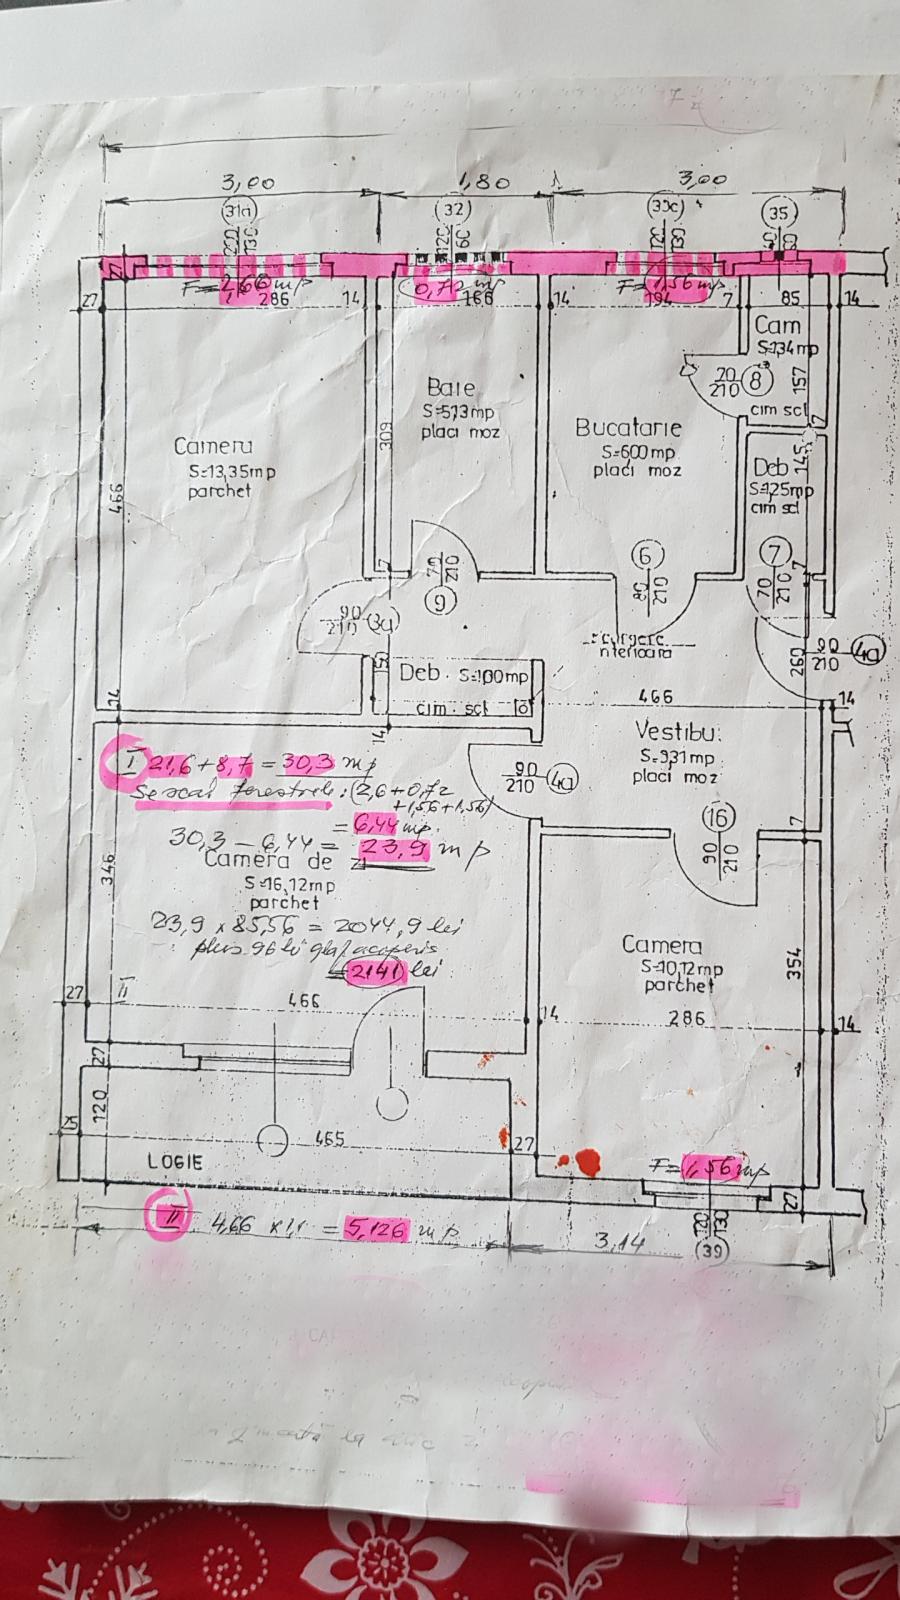 3,00 1,80 3,00
31a 32 35
120 60 120 130
27
F= 2,66 mp 0,72 mp F= 1,56 mp
27 286 14 166 14 194 7 85 14
Cam
S=1,34mp
70
210 8
157
cim scl
7
Baie
S=5,13mp
placi moz
309
Bucatarie
S=6,00mp
placi moz
Camera
S=13,35mp
parchet
466
145
Deb
S=1,25mp
cim scl
6
80
210
7
70
210
7
70
210
9
90
210
Deb. S=1,00mp
cim. scl
260
90
210 4a
466
14
14
14
Vestibul
S=9,31mp
placi moz
I 21,6+8,7 = 30,3 mp
Se scad ferestrele: (2,6+0,72
+1,56+1,56)
= 6,44 mp.
30,3 – 6,44 = 23,9 mp
90
210 4a
16
90
210
7
Camera de zi
S=16,12mp
parchet
346
23,9 x 85,56 = 2044,9 lei
plus 96 lei glaf acoperis
= 2141 lei
Camera
S=10,12mp
parchet
354
27 II 466 14 286 14
27
120
25 465 27
LOGIE
F= 1,56 mp
27
120
130
39
II 4,66 x 1,1 = 5,126 mp
3,14